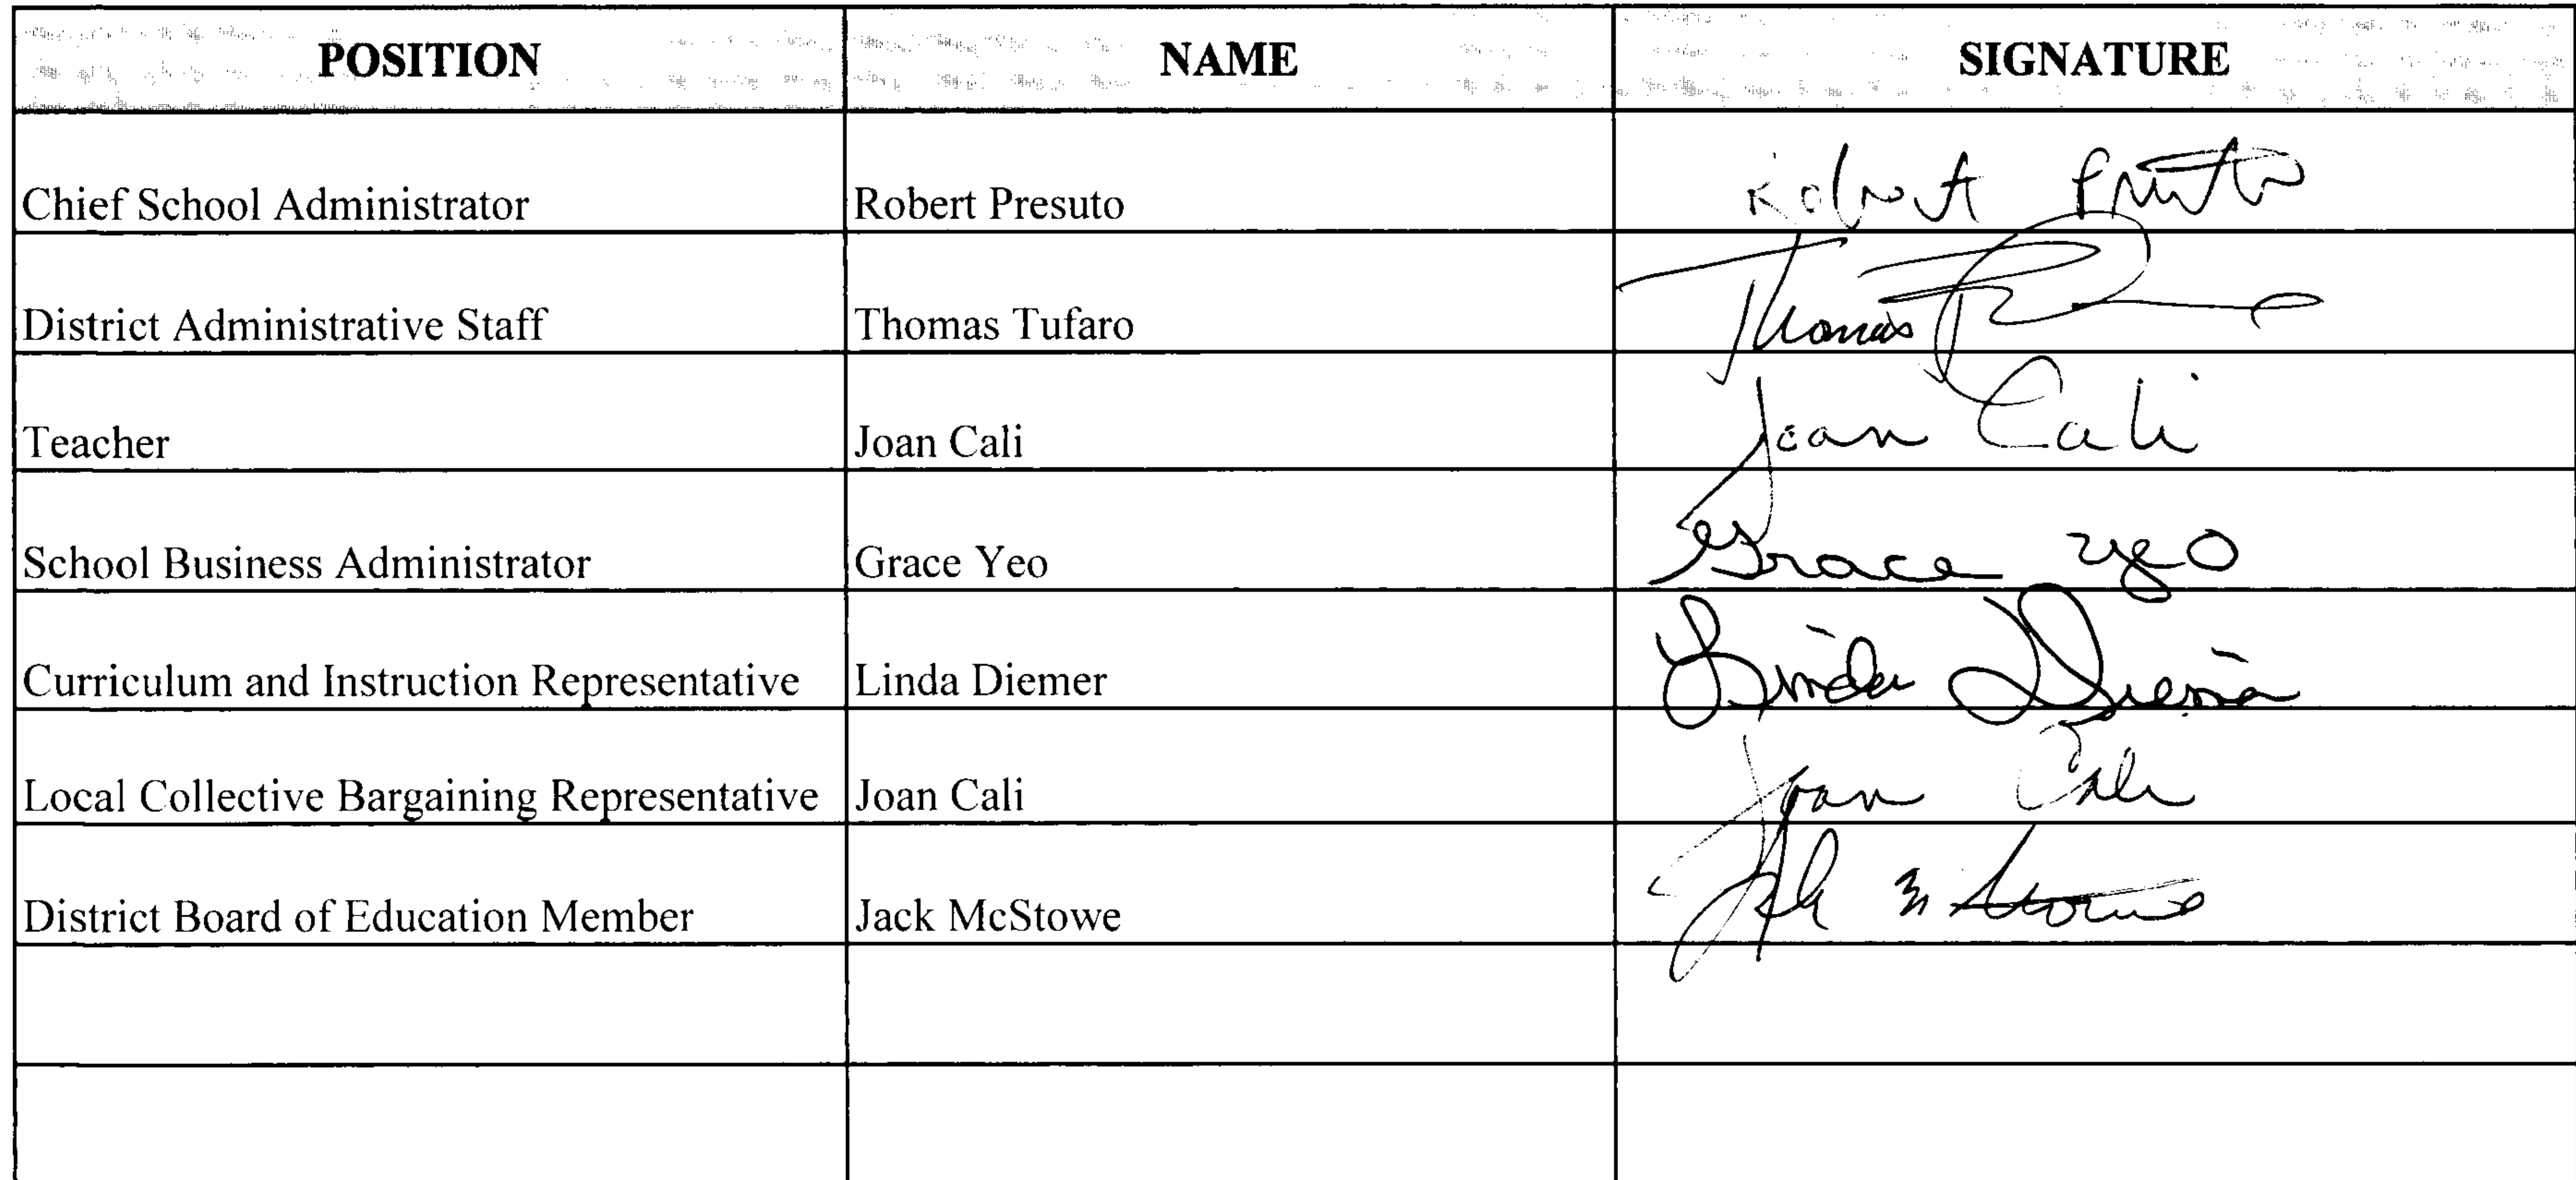 POSITION NAME SIGNATURE
Chief School Administrator Robert Presuto Robert Presuto
District Administrative Staff Thomas Tufaro Thomas
Teacher Joan Cali Joan Cali
School Business Administrator Grace Yeo Grace Yeo
Curriculum and Instruction Representative Linda Diemer Linda
Local Collective Bargaining Representative Joan Cali Joan Cali
District Board of Education Member Jack McStowe Jack McStowe